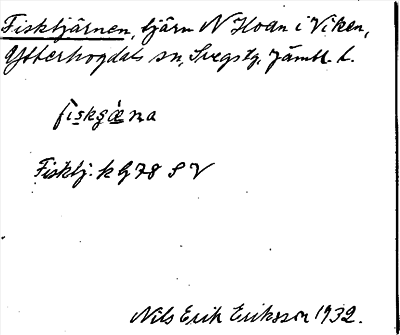 Fisktjärnen, tjärn N Hoan i Viken,
Ytterhogdals sn, Svegs tg, Jämtl. l.
fiskgǽna
Fisktj. k G 78 S V
Nils Erik Eriksson 1932.